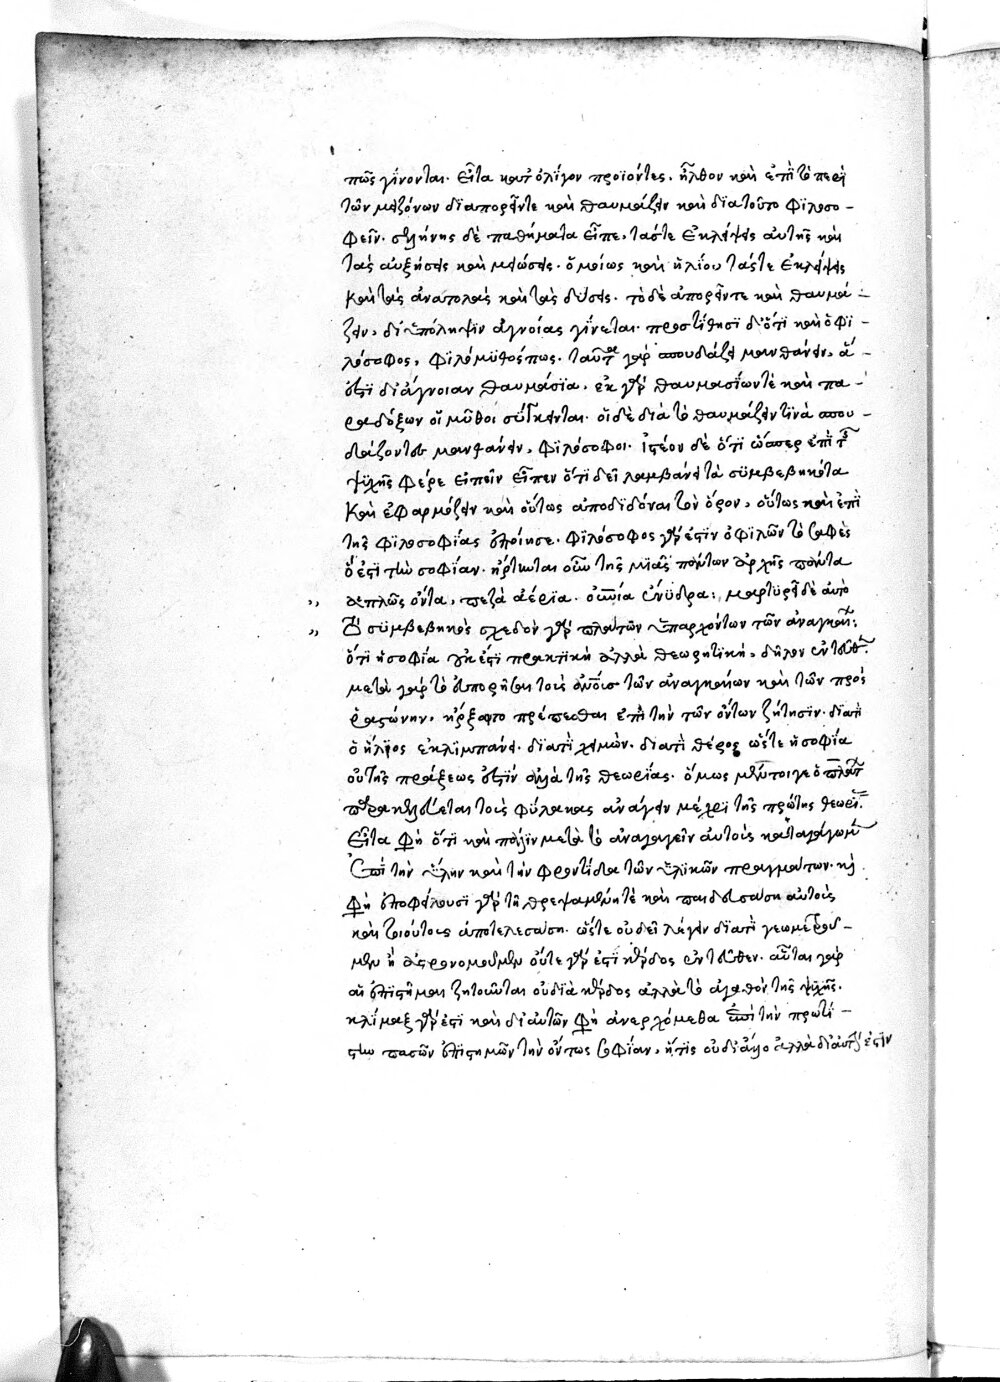 πῶς γίνονται. εἶτα κατ' ὀλίγον προϊόντες, ἦλθον καὶ ἐπὶ τὸ περὶ
τῶν μειζόνων διαπορεῖν τε καὶ θαυμάζειν καὶ διατοῦτο φιλοσο-
φεῖν. σελήνης δὲ παθήματα εἶπε, τάς τε ἐκλείψεις αὐτῆς καὶ
τὰς αὐξήσεις καὶ μειώσεις. ὁμοίως καὶ ἡλίου τάς τε ἐκλείψεις
καὶ τὰς ἀνατολὰς καὶ τὰς δύσεις. τὸ δὲ ἀπορεῖν τε καὶ θαυμά-
ζειν, δι' ὑπόληψιν ἀγνοίας γίνεται. προστίθησι διότι καὶ ὁ φι-
λόσοφος, φιλόμυθός πως. ταῦτα γὰρ σπουδάζει μανθάνειν, ἅ
ἐστι δι' ἄγνοιαν θαυμάσια. ἐκ γὰρ θαυμασίων τὲ καὶ πα-
ραδόξων οἱ μῦθοι σύγκεινται. οἱ δὲ διὰ τὸ θαυμάζειν τινὰ σπου-
δάζοντες μανθάνειν, φιλόσοφοι. ἰστέον δὲ ὅτι ὥσπερ ἐπὶ τῆς
ψυχῆς φέρε εἰπεῖν εἶπεν ὅτι δεῖ λαμβάνειν τὰ συμβεβηκότα
καὶ ἐφαρμόζειν καὶ οὕτως ἀποδιδόναι τὸν ὅρον, οὕτως καὶ ἐπὶ
τῆς φιλοσοφίας ἐποίησε. φιλόσοφος γάρ ἐστιν ὁ φιλῶν τὸ σαφὲς
ὅ ἐστι τὴν σοφίαν. ἤρτηνται οὖν τῆς μιᾶς πάντων ἀρχῆς πάντα
ἁπλῶς ὄντα, πεζὰ ἀέρια. οὐσία ἔνυδρα: μαρτυρεῖ δὲ αὐτὸ
τὸ συμβεβηκὸς σχεδὸν γὰρ πάντων ὑπαρχόντων τῶν ἀναγκαίων:
ὅτι ἡ σοφία οὐκ ἔστι πρακτικὴ ἀλλὰ θεωρητική, δῆλον ἐντεῦθεν.
μετὰ γὰρ τὸ εὐπορῆσαι τοὺς ἀνθρώπους τῶν ἀναγκαίων καὶ τῶν πρὸς
ῥαστώνην, ἤρξαντο τρέπεσθαι ἐπὶ τὴν τῶν ὄντων ζήτησιν. διατί
ὁ ἥλιος ἐκλιμπάνει. διατὶ χειμών. διατὶ θέρος ὥστε ἡ σοφία
οὐ τῆς πράξεως ἐστὶν ἀλλὰ τῆς θεωρίας. ὅμως μέντοιγε ὁ πλάτων
παρακελεύεται τοὺς φύλακας ἀνάγειν μέχρι τῆς πρώτης θεωρίας.
εἶτα φησὶ ὅτι καὶ πάλιν μετὰ τὸ ἀναγαγεῖν αὐτοὺς καταγάγωμεν
ἐπὶ τὴν ὕλην καὶ τὴν φροντίδα τῶν ὑλικῶν πραγμάτων. καὶ
φησὶ ἐποφείλουσι γὰρ τῇ θρεψαμένη τὲ καὶ παιδευσάση αὐτοὺς
καὶ τοιούτους ἀποτελεσάση. ὥστε οὐ δεῖ λέγειν διατί γεωμετροῦ-
μεν ἢ ἀστρονομοῦμεν οὔτε γάρ ἐστι κέρδος ἐντεῦθεν. αὗται γὰρ
αἱ ἐπιστῆμαι ζητοῦνται οὐ διὰ κέρδος ἀλλὰ τὸ ἀγαθὸν τῆς ψυχῆς.
κλίμαξ γάρ ἐστι καὶ δι' αὐτῶν φησὶ ἀνερχόμεθα ἐπὶ τὴν πρωτί-
στην πασῶν ἐπιστημῶν τὴν ὄντως σοφίαν, ἥτις οὐ δι' ἄλλο ἀλλὰ δι' αὐτήν ἐστιν